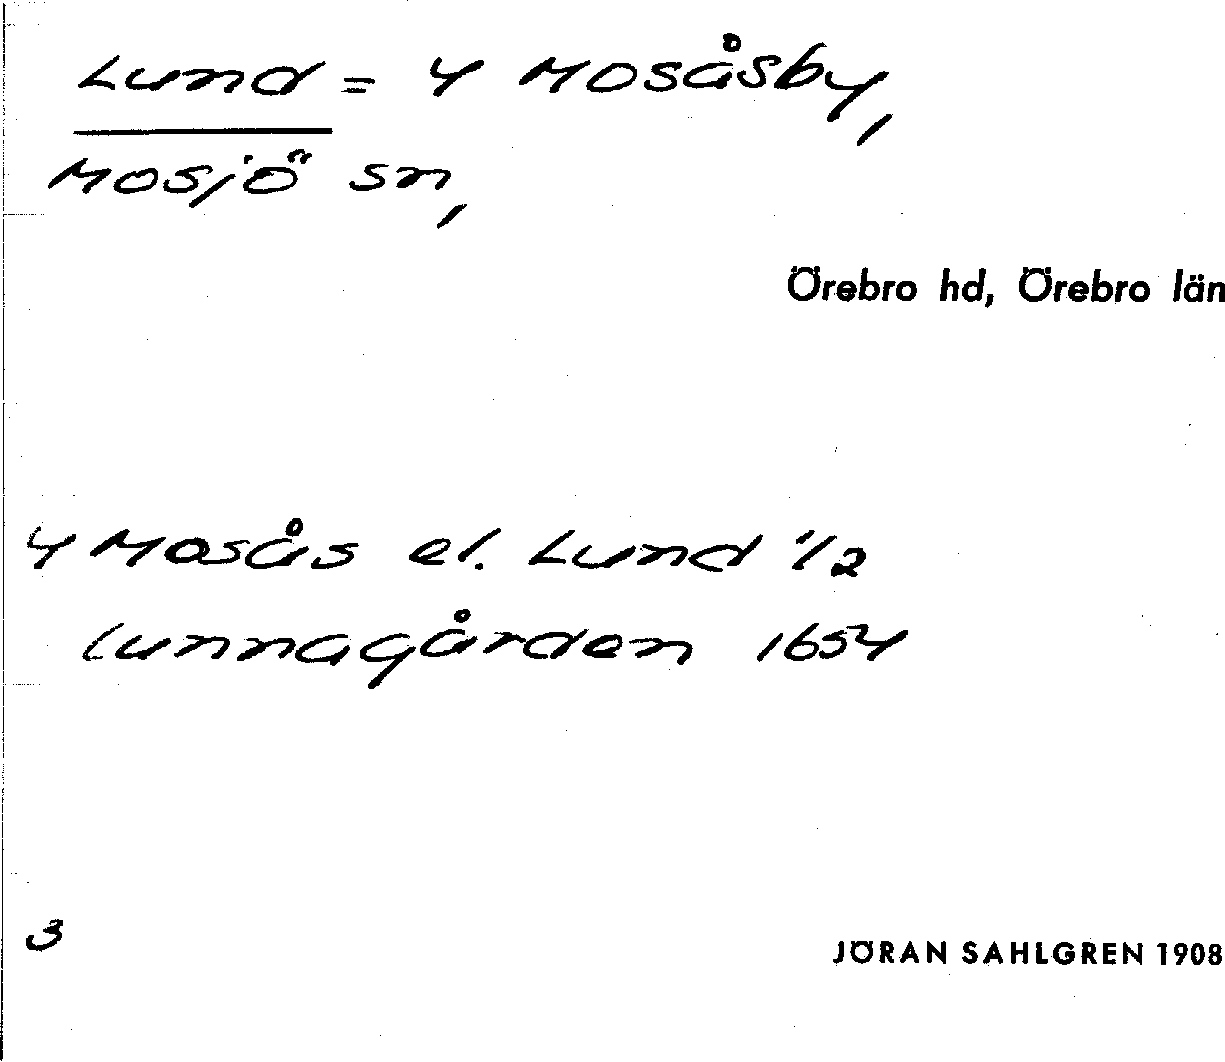 Lund = 4 Mosåsby,
Mosjö sn,
Örebro hd, Örebro län
4 Mosås el. Lund 1/2
Lunnagården 1654
3
JÖRAN SAHLGREN 1908